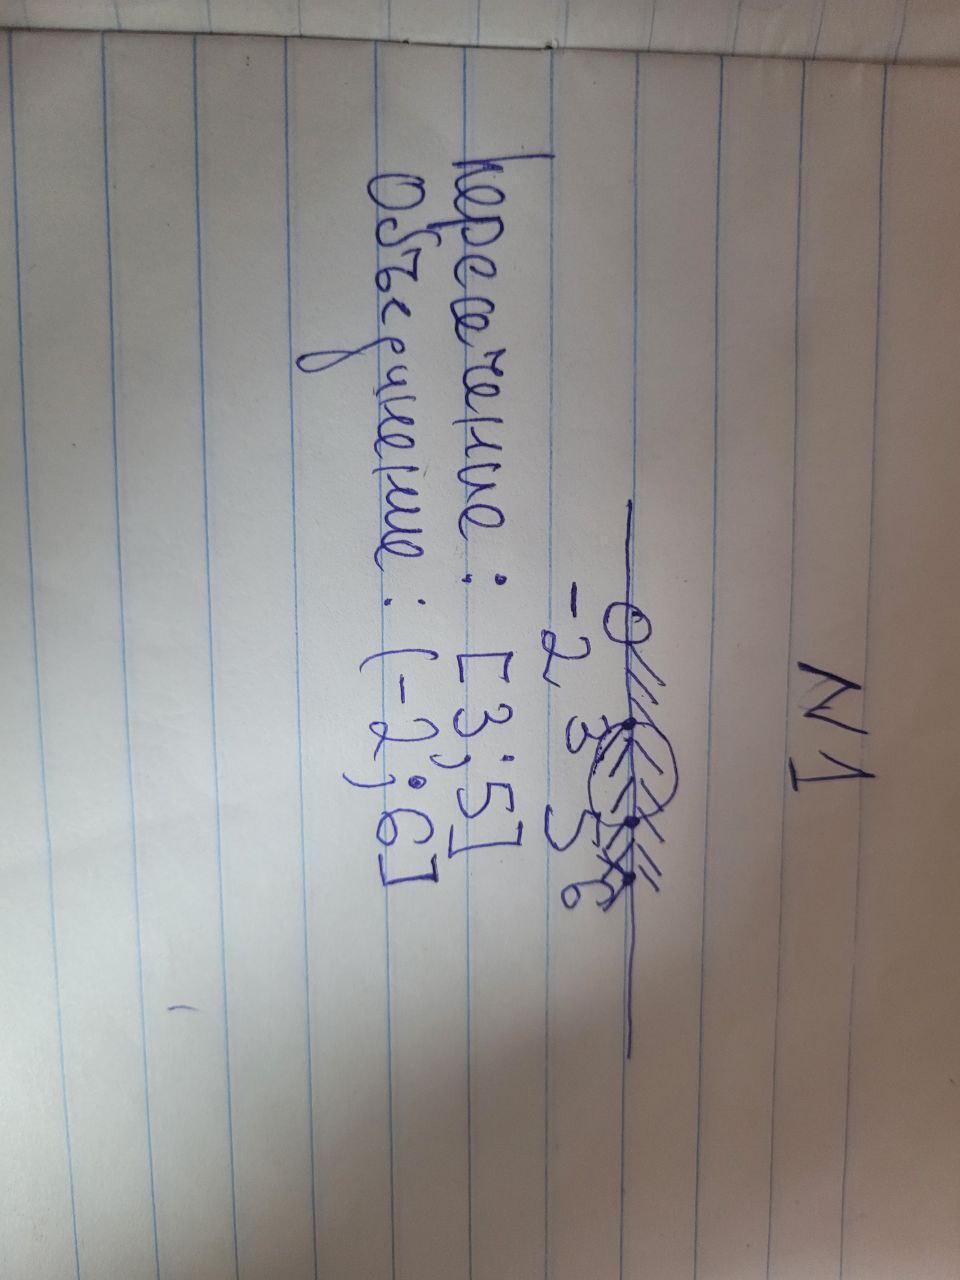 N1
-2 3 5 6
Пересечение: [3;5]
Объединение: (-2;6]